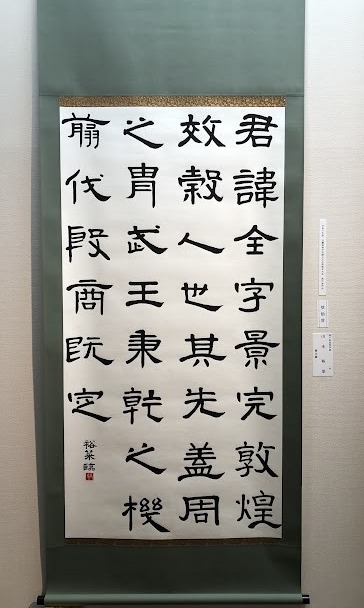 君諱全字景完敦煌
效穀人也其先蓋周
之胄武王秉乾之機
翦伐殷商既定
臨